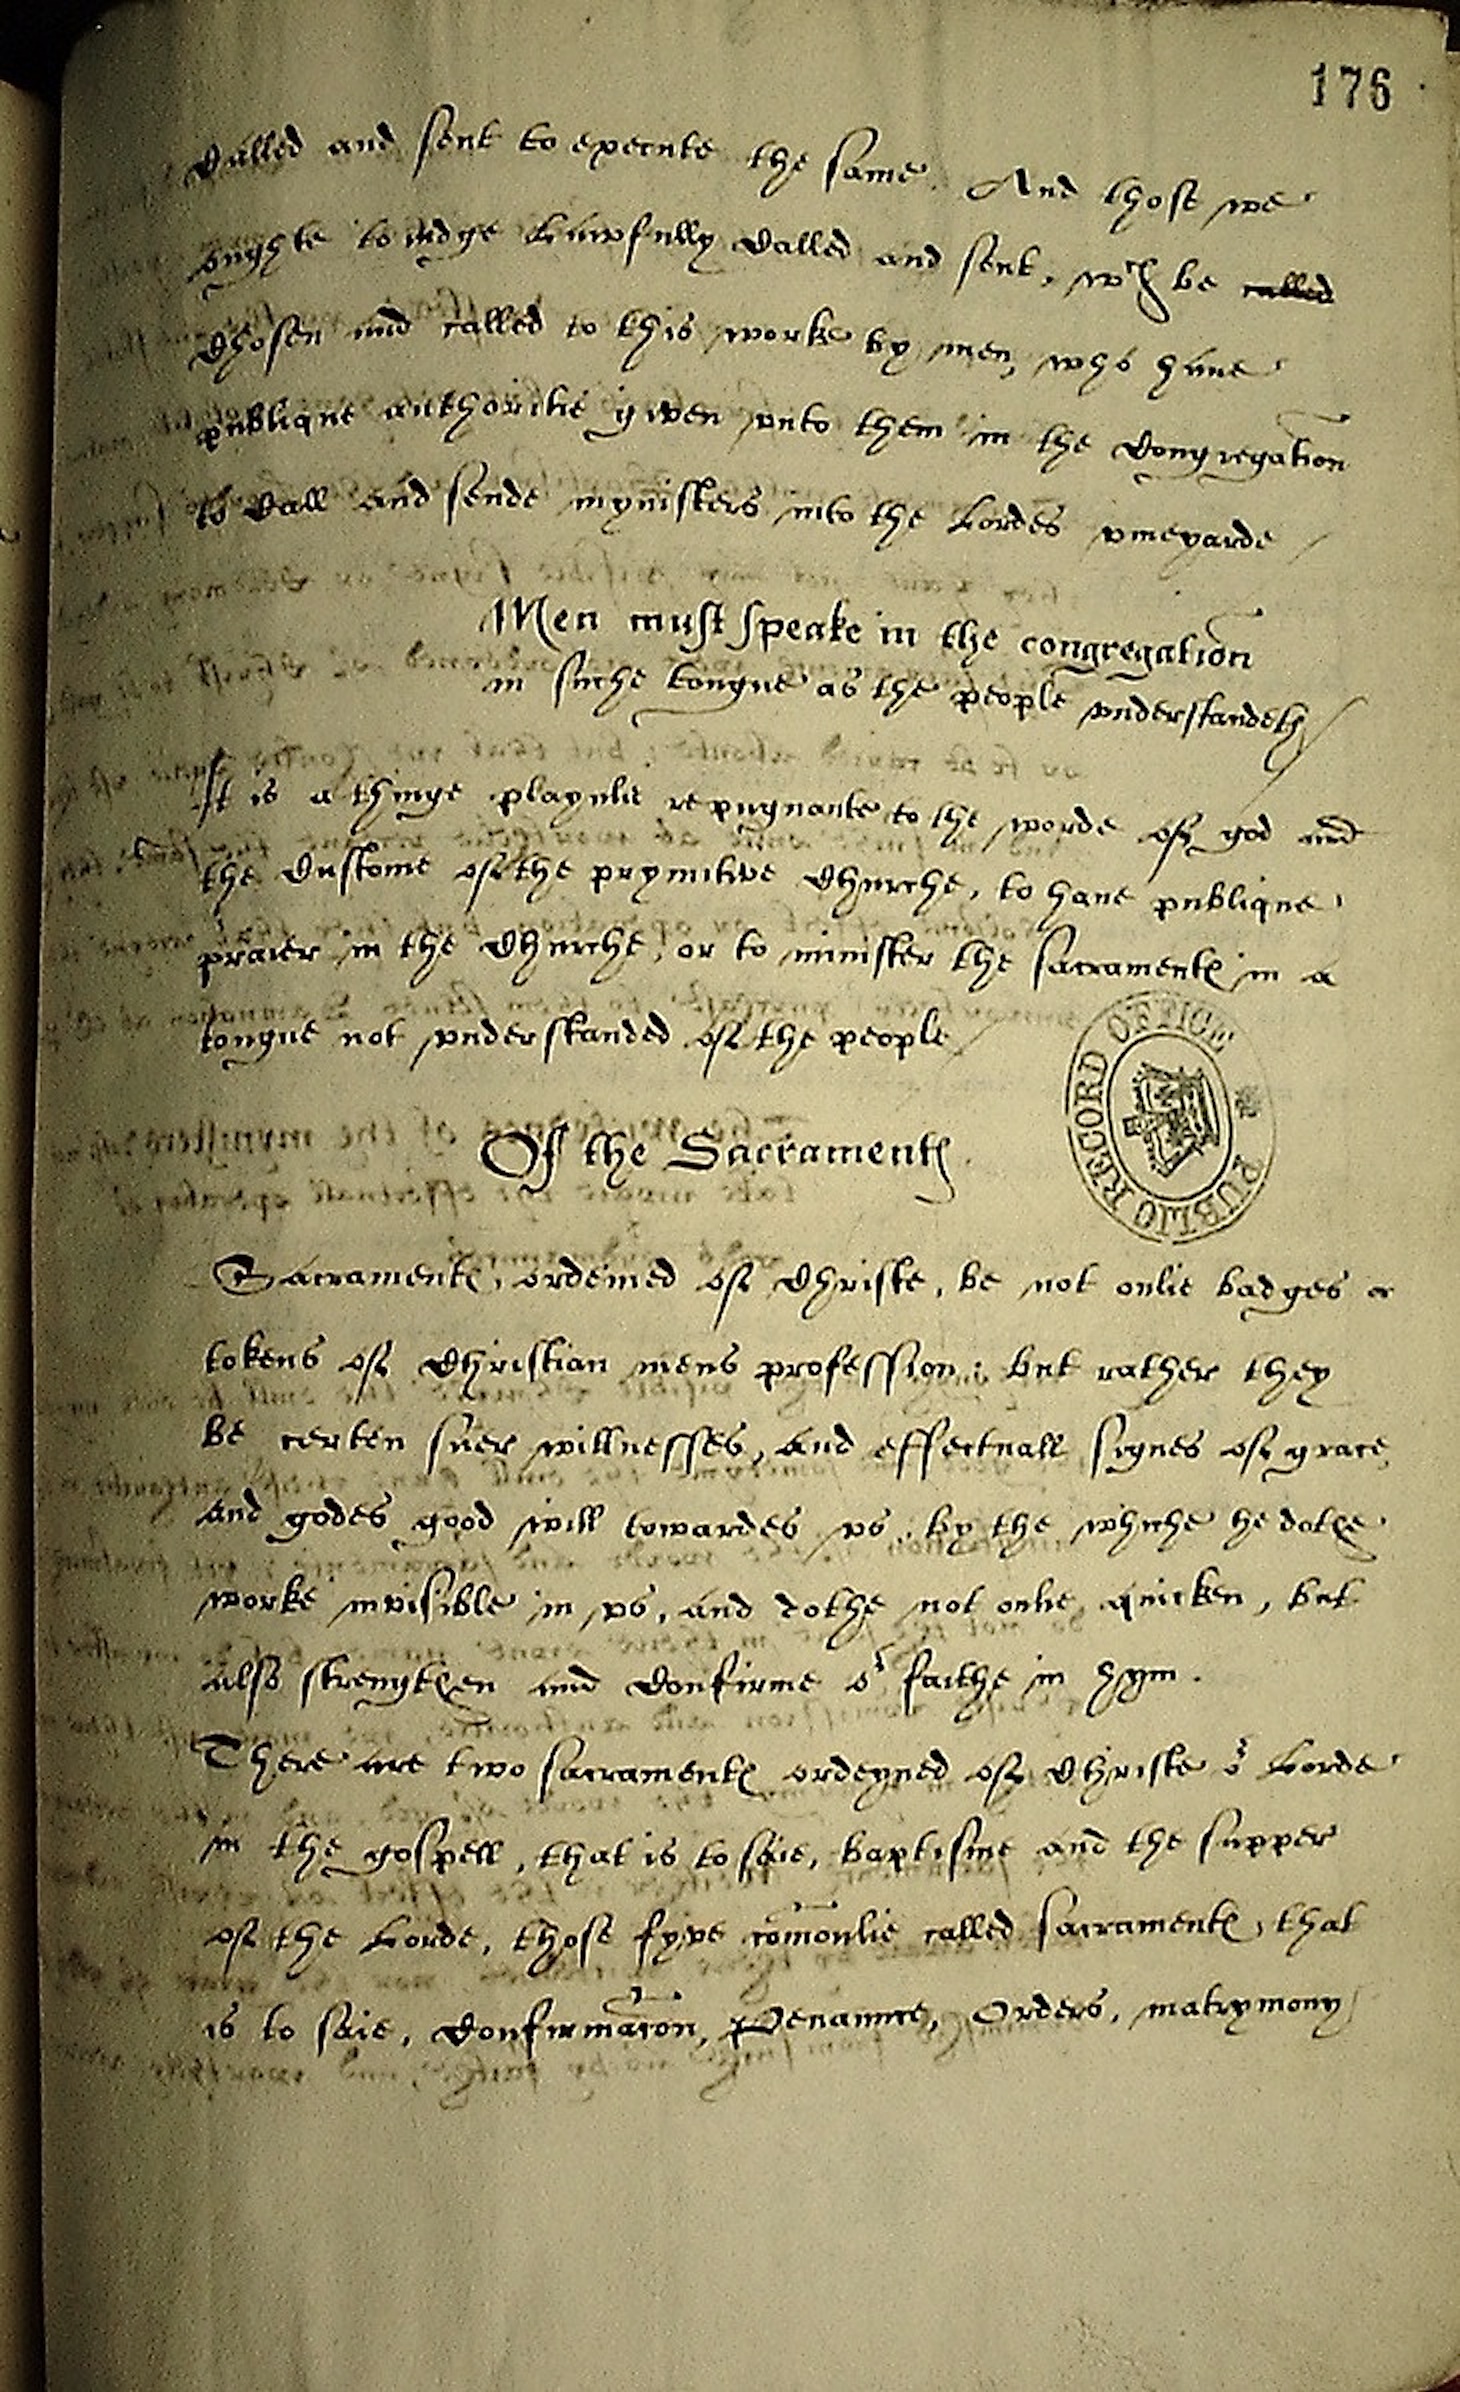 176
Called and sent to execute the same. And those we
oughte to iudge Lawfully Called and sent, wch be called
Chosen and called to this worke by men, who haue
publique authoritie given vnto them in the Congregation
to Call and sende mynisters into the Lordes vineyarde
Men must speake in the congregation
in suche tongue as the people vnderstandeth
It is a thinge playnlie repugnante to the worde of god and
the Custome of the prymitive Churche, to haue publique
praier in the Churche, or to minister the sacramentes in a
tongue not vnderstanded of the people
PUBLIC RECORD OFFICE
Of the Sacramentes.
Sacramentes, ordeined of Christe, be not onlie badges or
tokens of Christian mens profession: but rather they
be certen suer wittnesses, and effectuall signes of grace
and godes good will towardes vs, by the whiche he dothe
worke invisible in vs, and dothe not onlie quicken, but
also strengthen and Confirme or faithe in hym.
There are two sacramentes ordeyned of Christe or Lorde
in the gospell, that is to saie, baptisme and the supper
of the Lorde, those fyve comonlie called sacramentes, that
is to saie, Confirmacon, Penannce, Orders, matrymony